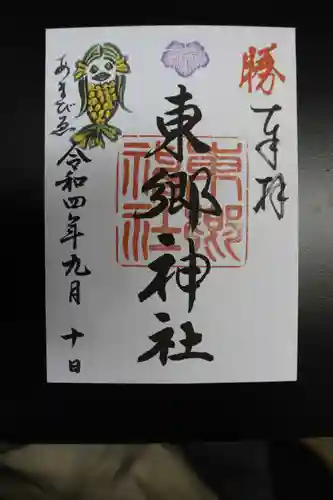 勝
奉拝
東郷神社
東郷神社
あまびゑ
令和四年九月十日